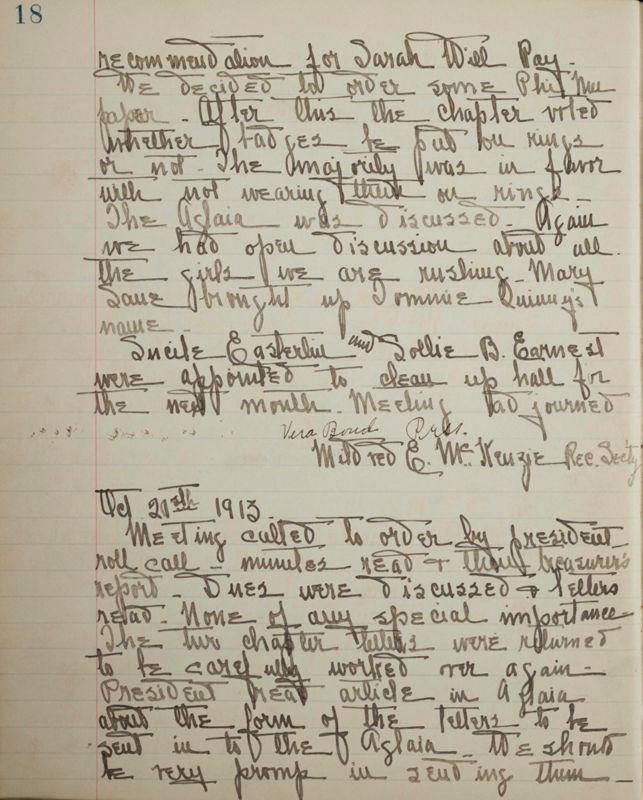 18
recommendation for Sarah Will Pay -
We decided to order some Phi Mu
paper - After this the chapter voted
whether badges be put on rings
or not - The majority was in favor
with not wearing them on rings -
The Aglaia was discussed - Again
we had open discussion about all
the girls we are rushing - Mary
Jane brought up Tommie Quinny's
name -
Lucile Easterlin and Sollie B. Earnest
were appointed to clean up hall for
the next month. Meeting adjourned
Vera Bond Pres.
Mildred E. McKenzie Rec. Sec'ty
Oct 21st 1913.
Meeting called to order by president
roll call - minutes read + then treasurer's
report - Dues were discussed + letters
read - None of any special importance
The two chapter letters were returned
to be carefully worked over again -
President read article in Aglaia
about the form of the letters to be
sent in to the Aglaia - We should
be very promp in sending them -